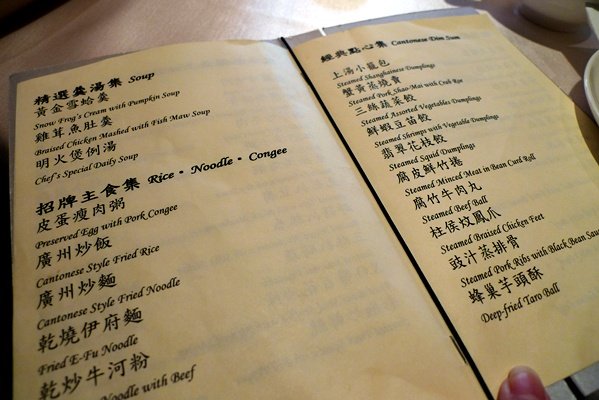 精選羹湯集 Soup
黃金雪蛤羹
Snow Frog's Cream with Pumpkin Soup
雞茸魚肚羹
Braised Chicken Mashed with Fish Maw Soup
明火煲例湯
Chef's Special Daily Soup
招牌主食集 Rice • Noodle • Congee
皮蛋瘦肉粥
Preserved Egg with Pork Congee
廣州炒飯
Cantonese Style Fried Rice
廣州炒麵
Cantonese Style Fried Noodle
乾燒伊府麵
Fried E-Fu Noodle
乾炒牛河粉
Noodle with Beef
經典點心集 Cantonese Dim Sum
上湯小籠包
Steamed Shanghainese Dumplings
蟹黃蒸燒賣
Steamed Pork Shao-Mai with Crab Roe
三絲蔬菜餃
Steamed Assorted Vegetables Dumplings
鮮蝦豆苗餃
Steamed Shrimps with Vegetable Dumplings
翡翠花枝餃
Steamed Squid Dumplings
腐皮鮮竹捲
Steamed Minced Meat in Bean Curd Roll
腐竹牛肉丸
Steamed Beef Ball
柱侯炆鳳爪
Steamed Braised Chicken Feet
豉汁蒸排骨
Steamed Pork Ribs with Black Bean Sau
蜂巢芋頭酥
Deep-fried Taro Ball